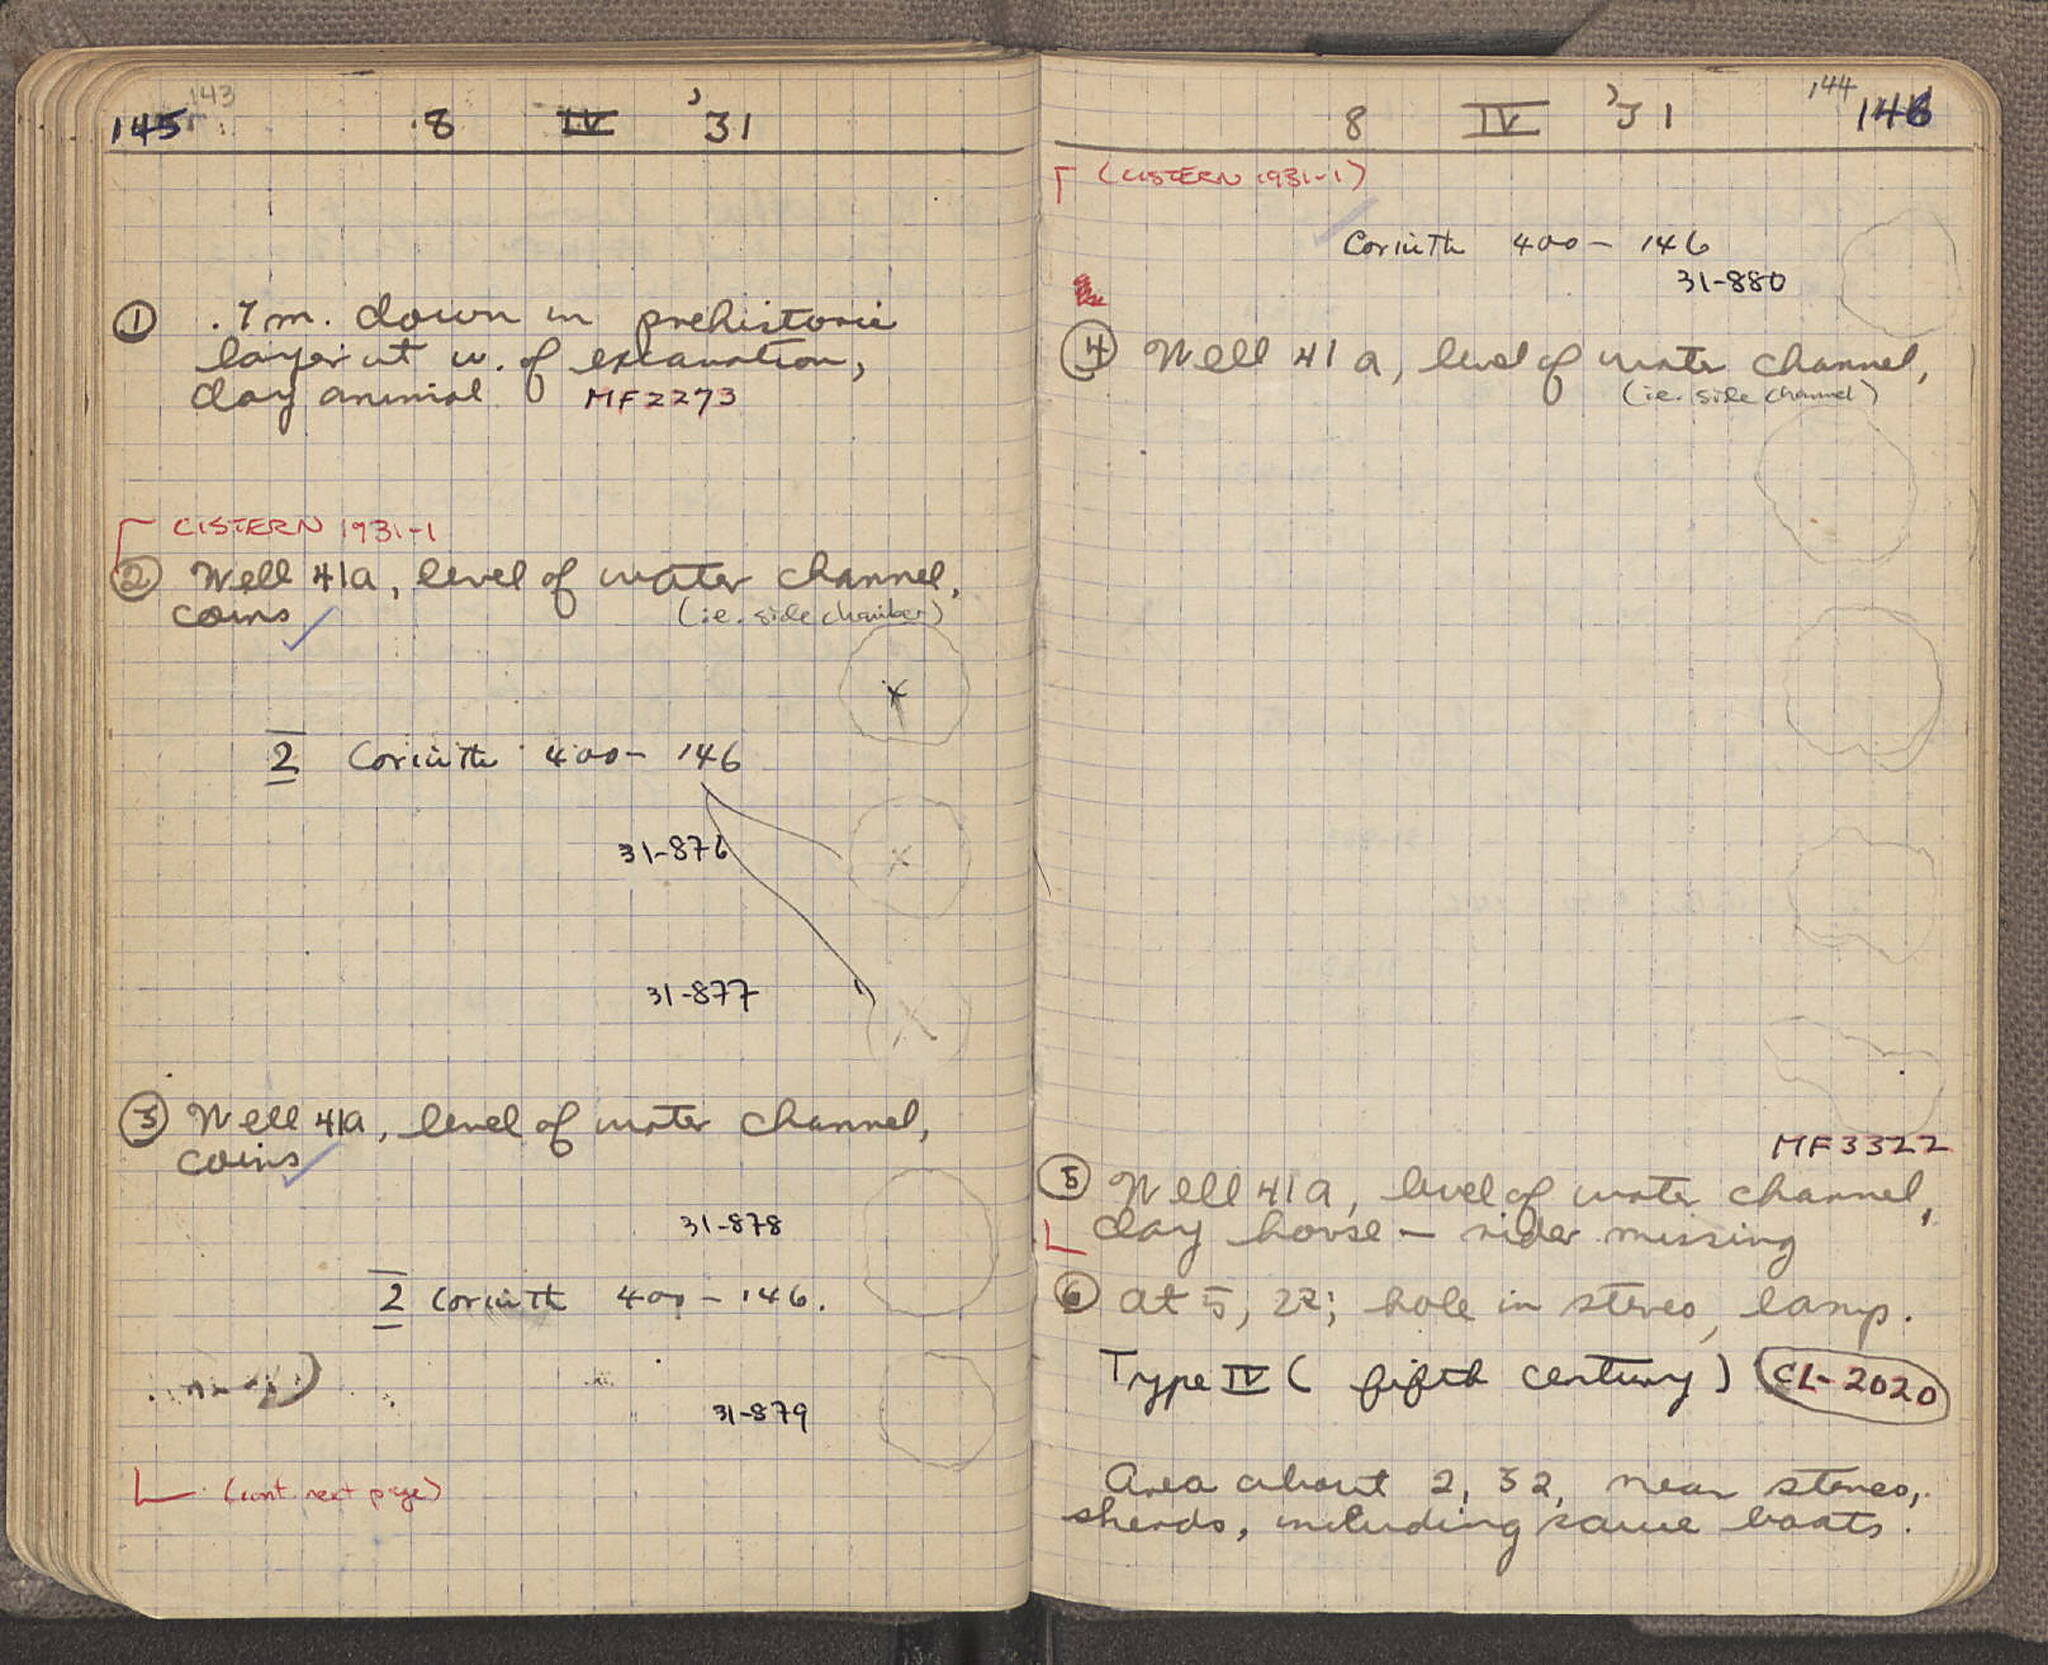 143
145 8 IV '31
① .7 m. down in prehistoric
layer at w. of excavation,
clay animal MF2273
CISTERN 1931-1
② Well 41a, level of water channel,
(i.e. side chamber)
coins
2 Corinth 400- 146
31-876
31-877
③ Well 41a, level of water channel,
coins
31-878
2 Corinth 400 - 146.
31-879
(cont. next page)
144
8 IV '31 146
(CISTERN 1931-1)
Corinth 400- 146
31-880
④ Well 41a, level of water channel,
(i.e. side channel)
MF3322
⑤ Well 41a, level of water channel,
clay horse - rider missing
⑥ at 5, 22; hole in stereo, lamp.
Type IV ( fifth century) CL-2020
Area about 2, 32, near stereo,
sherds, including sauce boats.